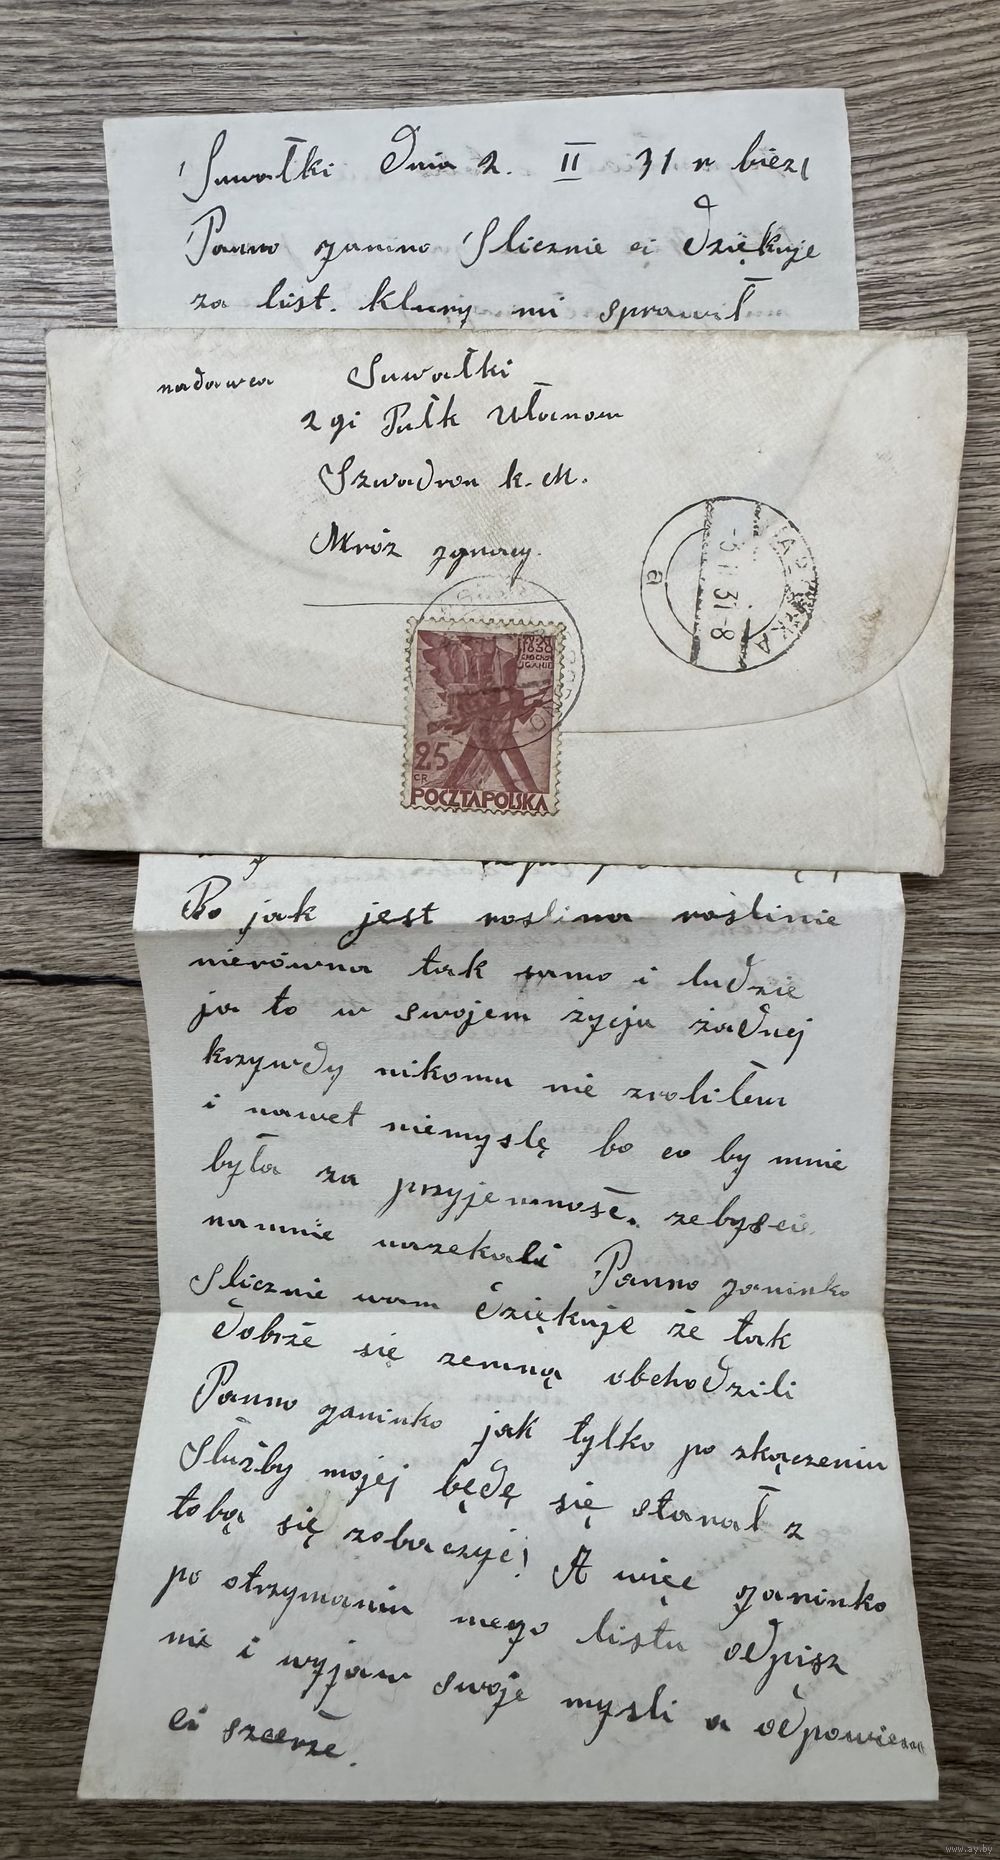 Suwałki Dnia 2. II 31 r bież
Panno Janino Slicznie ci Dziękuje
za list. klury mi sprawił
nadawca Suwałki
2gi Pułk Ułanow
Szwadron k. M.
Mróz Jgnacy.
-3 II 31-8
a
25
GR
POCZTA POLSKA
Bo jak jest roslina roślinie
nierówna tak samo i ludzie
ja to w swojem życju żadnej
krzywdy nikomu nie zrobiłem
i nawet niemyslę bo co by mnie
była za przyjemnośc. zebyscie
namnie nazekali Panno Janinko
Slicznie wam Dziękuje że tak
Dobrże się zemną obchodzili
Panno Janinko jak tylko po zkączeniu
Służby mojej będę się starał z
tobą się zobaczyc! A więc Janinko
po otrzymaniu mego listu odpisz
mi i wyjaw swoje mysli a odpowiem
ci szczerze.
www.ay.by